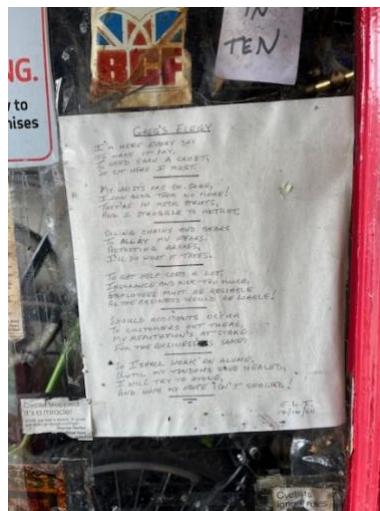 NG.
y to
mises
BCF
IN
TEN
GREG'S ELEGY
I'M HERE EVERY DAY
TO MAKE IT PAY,
I NEED EARN A CRUST,
SO SIT HERE I MUST.
MY WRISTS ARE SO SORE,
I CAN BEND THEM NO MORE!
THEY'RE IN METAL
AND I STRUGGLE TO
OILING CHAINS AND GEARS
TO ALLAY MY FEARS.
ADJUSTING BRAKES,
I'LL DO WHAT IT TAKES.
TO GET HELP COSTS A LOT,
INSURANCE AND RISK TOO MUCH,
EMPLOYEES MUST BE RELIABLE
AS THE BUSINESS WOULD BE LIABLE!
SHOULD ACCIDENTS OCCUR
TO CUSTOMERS OUT THERE,
MY REPUTATION'S AT STAKE
FOR THE BUSINESS'S SAKE.
SO I SHALL WORK ON ALONE,
UNTIL MY TENDONS HAVE HEALED,
I WILL TRY TO ATONE,
AND HOPE MY FATE ISN'T SEALED!
it's a miracle!
Cyclists